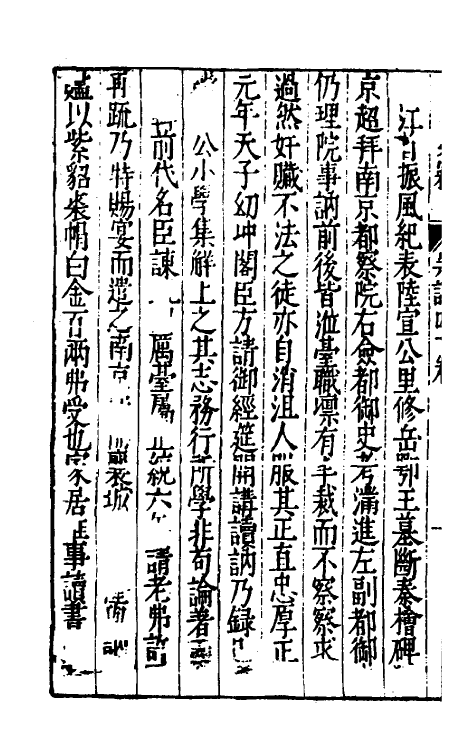 江 振風紀表陸宣公里修岳鄂王墓斷秦檜碑
京超拜南京都察院右僉都御史考滿進左副都御
仍理院事訥前後皆涖臺職凛有 裁而不察察求
過然奸贜不法之徒亦自消沮人服其正直忠厚正
元年天子幼冲閣臣方請御經筵開講讀訥乃録
公小學集解上之其志務行所學非苟論著
前代名臣諫 厲臺屬 統六 請老弗許
再疏乃特賜宴而遣之南京 裏城
以紫貂裘帽白金百兩弗受也家居 事讀書